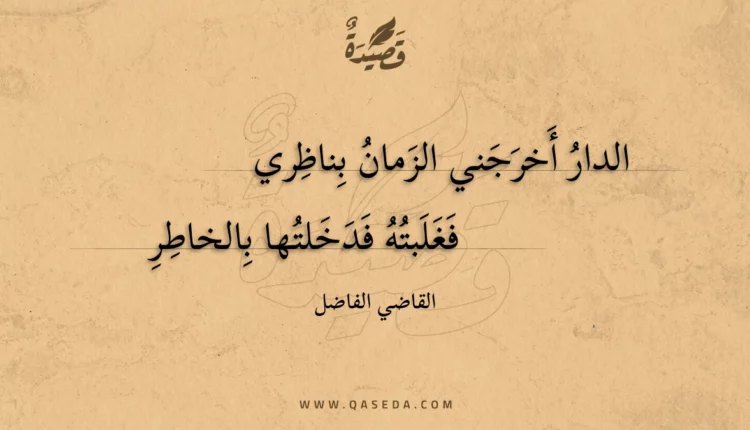 قَصِيدَةٌ
الدارُ أَخرَجَني الزَمانُ بِناظِري
فَغَلَبتُهُ فَدَخَلتُها بِالخاطِرِ
القاضي الفاضل
WWW.QASEDA.COM